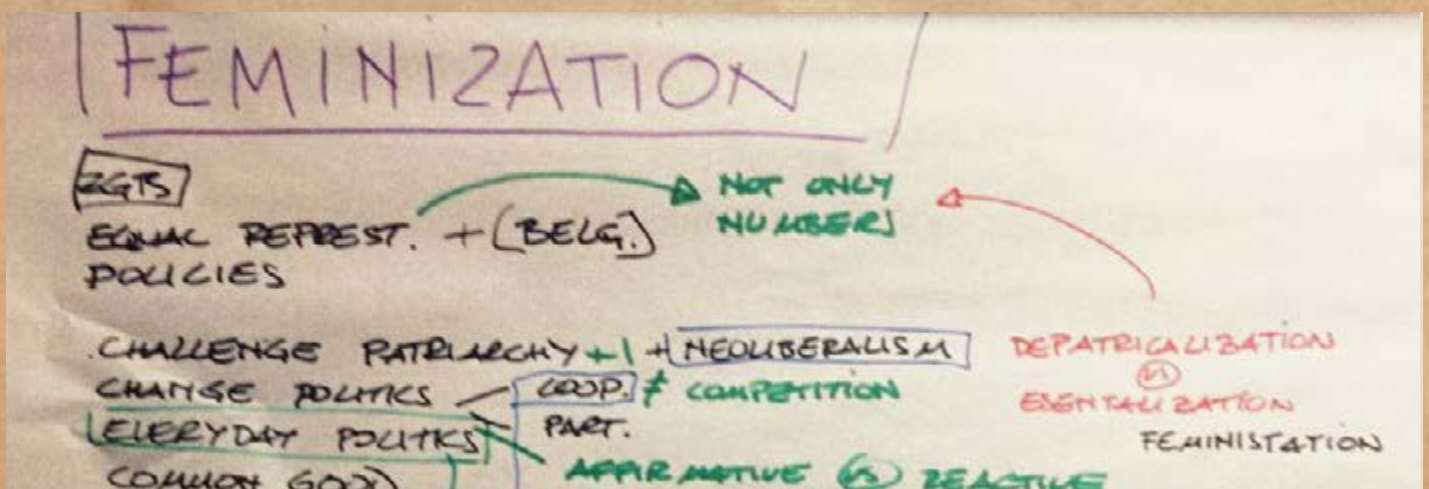 FEMINIZATION
ZGTS
EQUAL REPREST. + (BELG.)
POLICIES
NOT ONLY
NUMBERS
CHALLENGE PATRIARCHY +1 + NEOLIBERALISM
CHANGE POLITICS – COOP. ≠ COMPETITION
EVERYDAY POLITICS PART.
COMMON GOOD AFFIRMATIVE VS REACTIVE
DEPATRICALIZATION
VS
ESENTALIZATION
FEMINISTATION